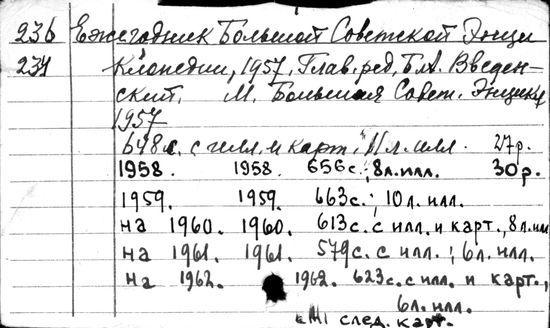 236 Ежегодник Большой Советской Энци
234 клопедии, 1957. Глав. ред. Б.А. Введен-
ский. М. Большая Совет. Энцикл
1957
648 с. с илл. и карт.; 11 л. илл. 27р.
1958. 1958. 656с.; 8л.илл. 30р.
1959. 1959. 663с.; 10л. илл.
на 1960. 1960. 613с. с илл. и карт., 8л.илл
на 1961. 1961. 579с. с илл.; 6л. илл.
на 1962. 1962. 623с. с илл. и карт.,
6л. илл.
см след. карт.